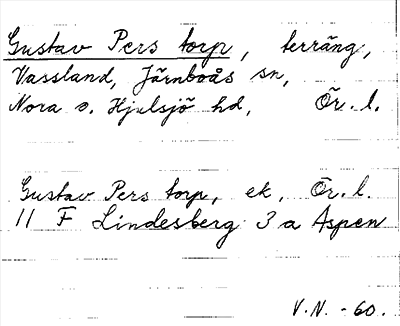 Gustav Pers torp, terräng,
Vassland, Järnboås sn,
Nora o. Hjulsjö hd, Ör. l.
Gustav Pers torp, ek, Ör. l.
11 F Lindesberg 3 a Aspen
V.N. -60.